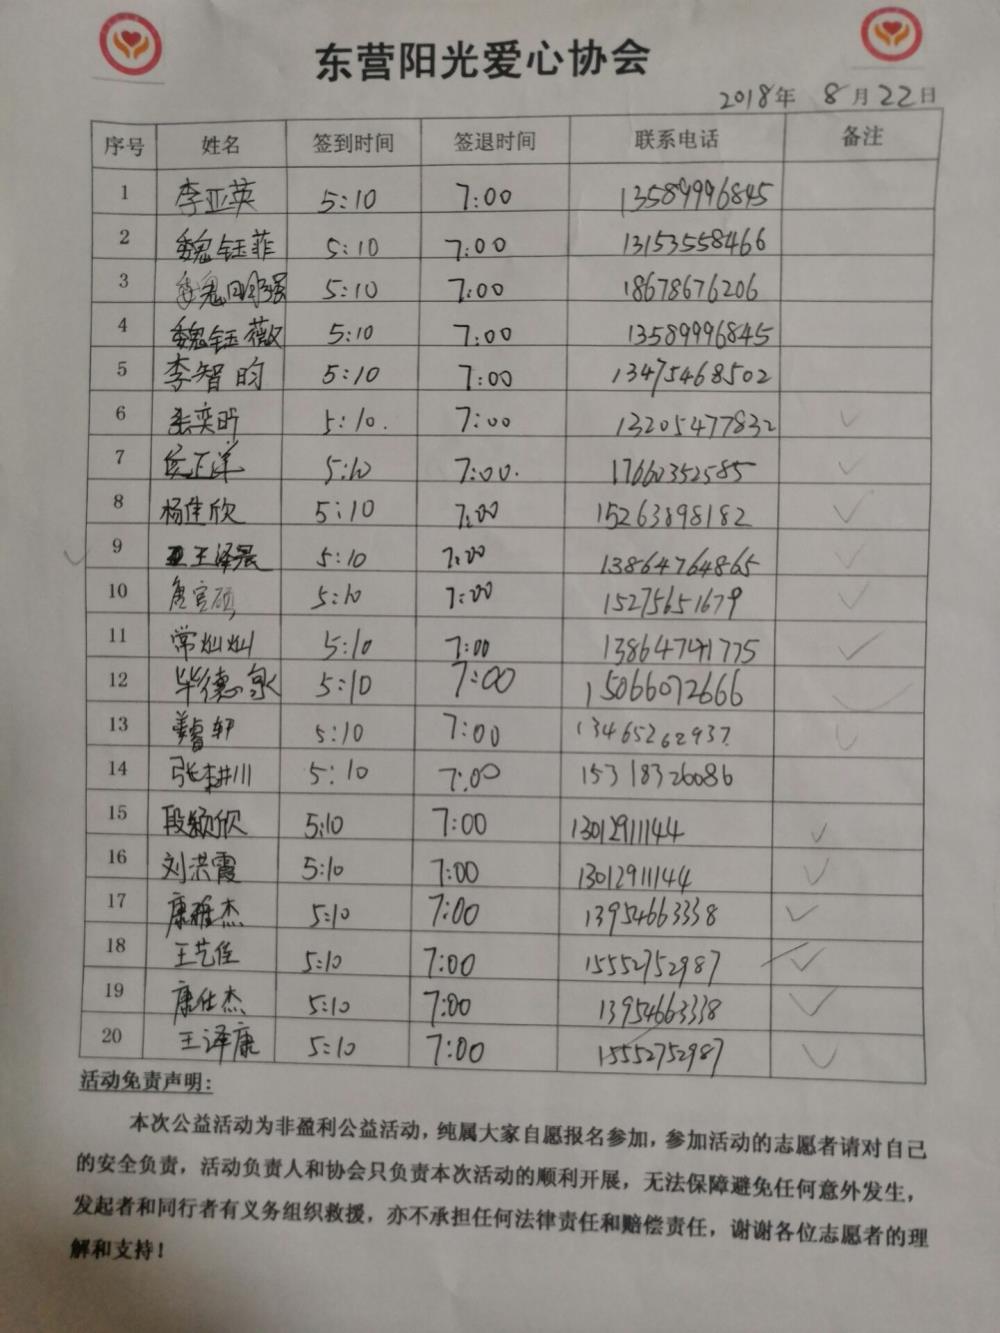 东营阳光爱心协会
2018年 8月22日
序号 姓名 签到时间 签退时间 联系电话 备注
1 李亚英 5:10 7:00 13589996845
2 魏钰菲 5:10 7:00 13153558466
3 魏 5:10 7:00 18678676206
4 魏钰薇 5:10 7:00 13589996845
5 李智昀 5:10 7:00 13475468502
6 张奕昕 5:10. 7:00 13205477832 ✓
7 5:10 7:00. 17660352585 ✓
8 杨佳欣 5:10 7:00 15263898182 ✓
✓ 9 王泽晨 5:10 7:00 13864764865 ✓
10 唐官硕 5:10 7:00 15275651679 ✓
11 常灿灿 5:10 7:00 13864741775 ✓
12 毕德泉 5:10 7:00 15066072666 ✓
13 姜睿轩 5:10 7:00 13465262937. ✓
14 张耕川 5:10 7:00 15318326086
15 段颖欣 5:10 7:00 13012911144 ✓
16 刘洪霞 5:10 7:00 13012911144 ✓
17 康雅杰 5:10 7:00 13954663338 ✓
18 王艺佳 5:10 7:00 15552752987 ✓
19 康仕杰 5:10 7:00 13954663338 ✓
20 王泽康 5:10 7:00 15552752987 ✓
活动免责声明：
本次公益活动为非盈利公益活动，纯属大家自愿报名参加，参加活动的志愿者请对自己
的安全负责，活动负责人和协会只负责本次活动的顺利开展，无法保障避免任何意外发生，
发起者和同行者有义务组织救援，亦不承担任何法律责任和赔偿责任，谢谢各位志愿者的理
解和支持！